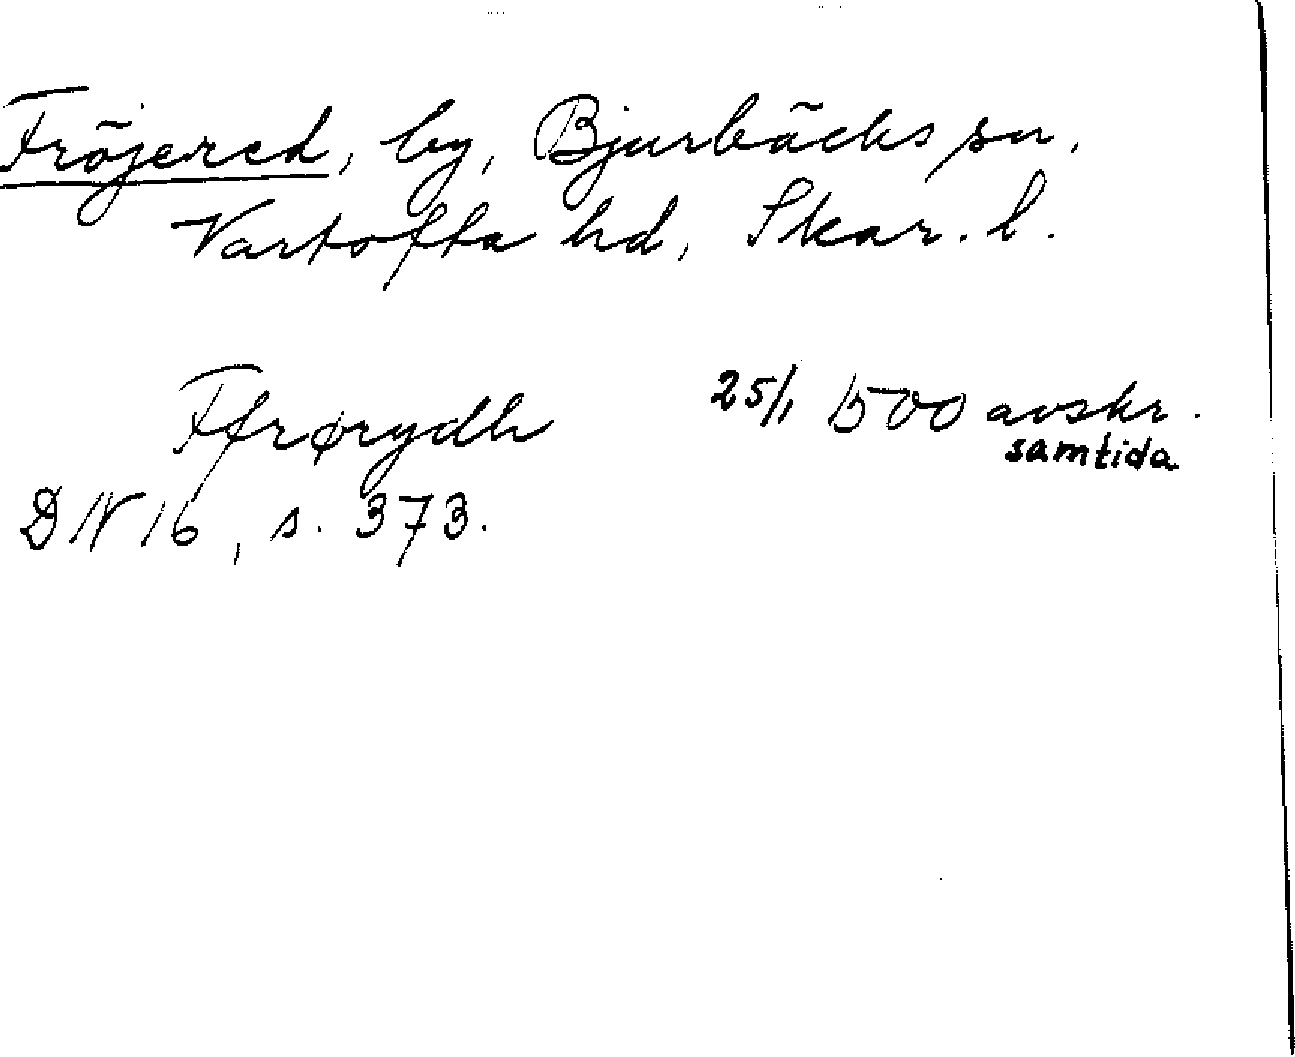 Fröjered, by, Bjurbäcks sn,
Vartofta hd, Skar. l.
Ffrørydh 25/1 1500 avskr.
samtida
DN 16, s. 373.